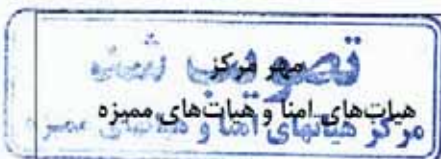 تصویب شد
مهر مرکز
هیات‌های امنا و هیات‌های ممیزه
مرکز هیاتهای امنا و هیاتهای ممیزه